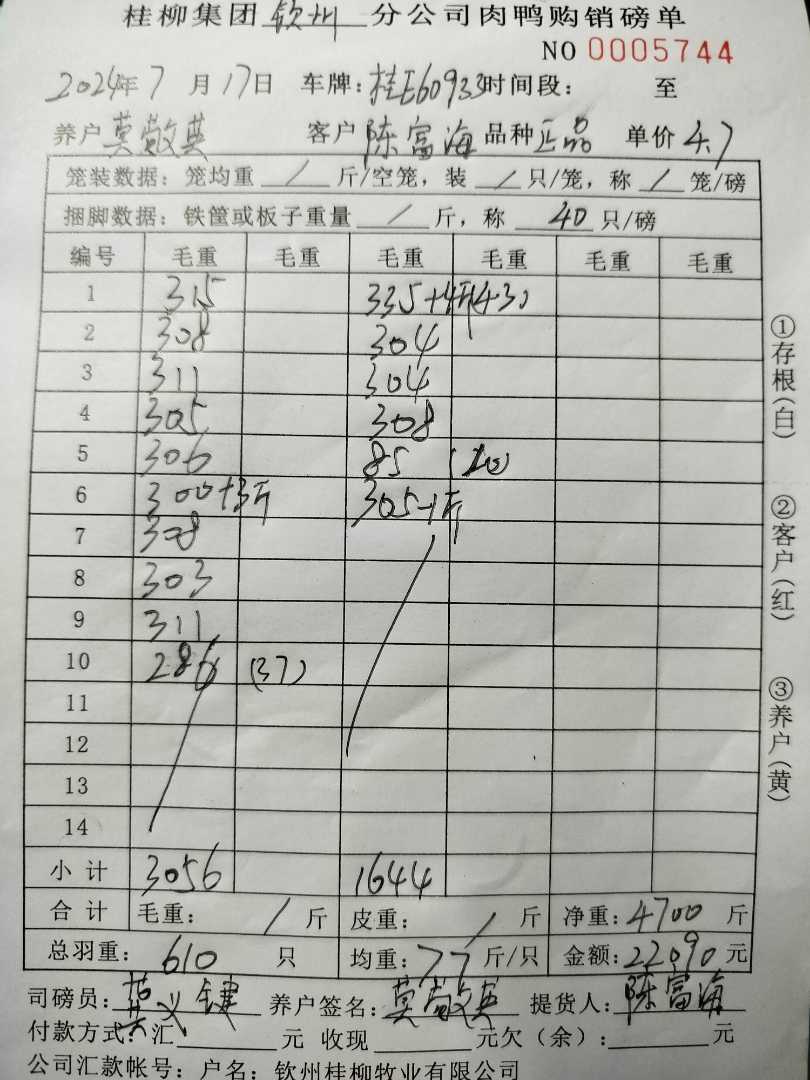 桂柳集团钦州分公司肉鸭购销磅单
NO 0005744
2024年7月17日 车牌:桂E60933时间段: 至
养户莫敬英 客户陈富海 品种正品 单价4.7
笼装数据: 笼均重 / 斤/空笼, 装 / 只/笼, 称 / 笼/磅
捆脚数据: 铁筐或板子重量 / 斤, 称 40 只/磅
编号 毛重 毛重 毛重 毛重 毛重 毛重
1 315 335+4斤(43)
2 308 304
3 311 304
4 305 308
5 306 85 (10)
6 300+3斤 305-1斤
7 308
8 303
9 311
10 286 (37)
11
12
13
14
小计 3056 1644
合计 毛重: / 斤 皮重: / 斤 净重:4700斤
总羽重: 610 只 均重:7.7斤/只 金额:22090元
司磅员:莫义键 养户签名:莫敬英 提货人:陈富海
付款方式:汇 元 收现 元欠(余): 元
公司汇款帐号: 户名: 钦州桂柳牧业有限公司
①存根(白)
②客户(红)
③养户(黄)